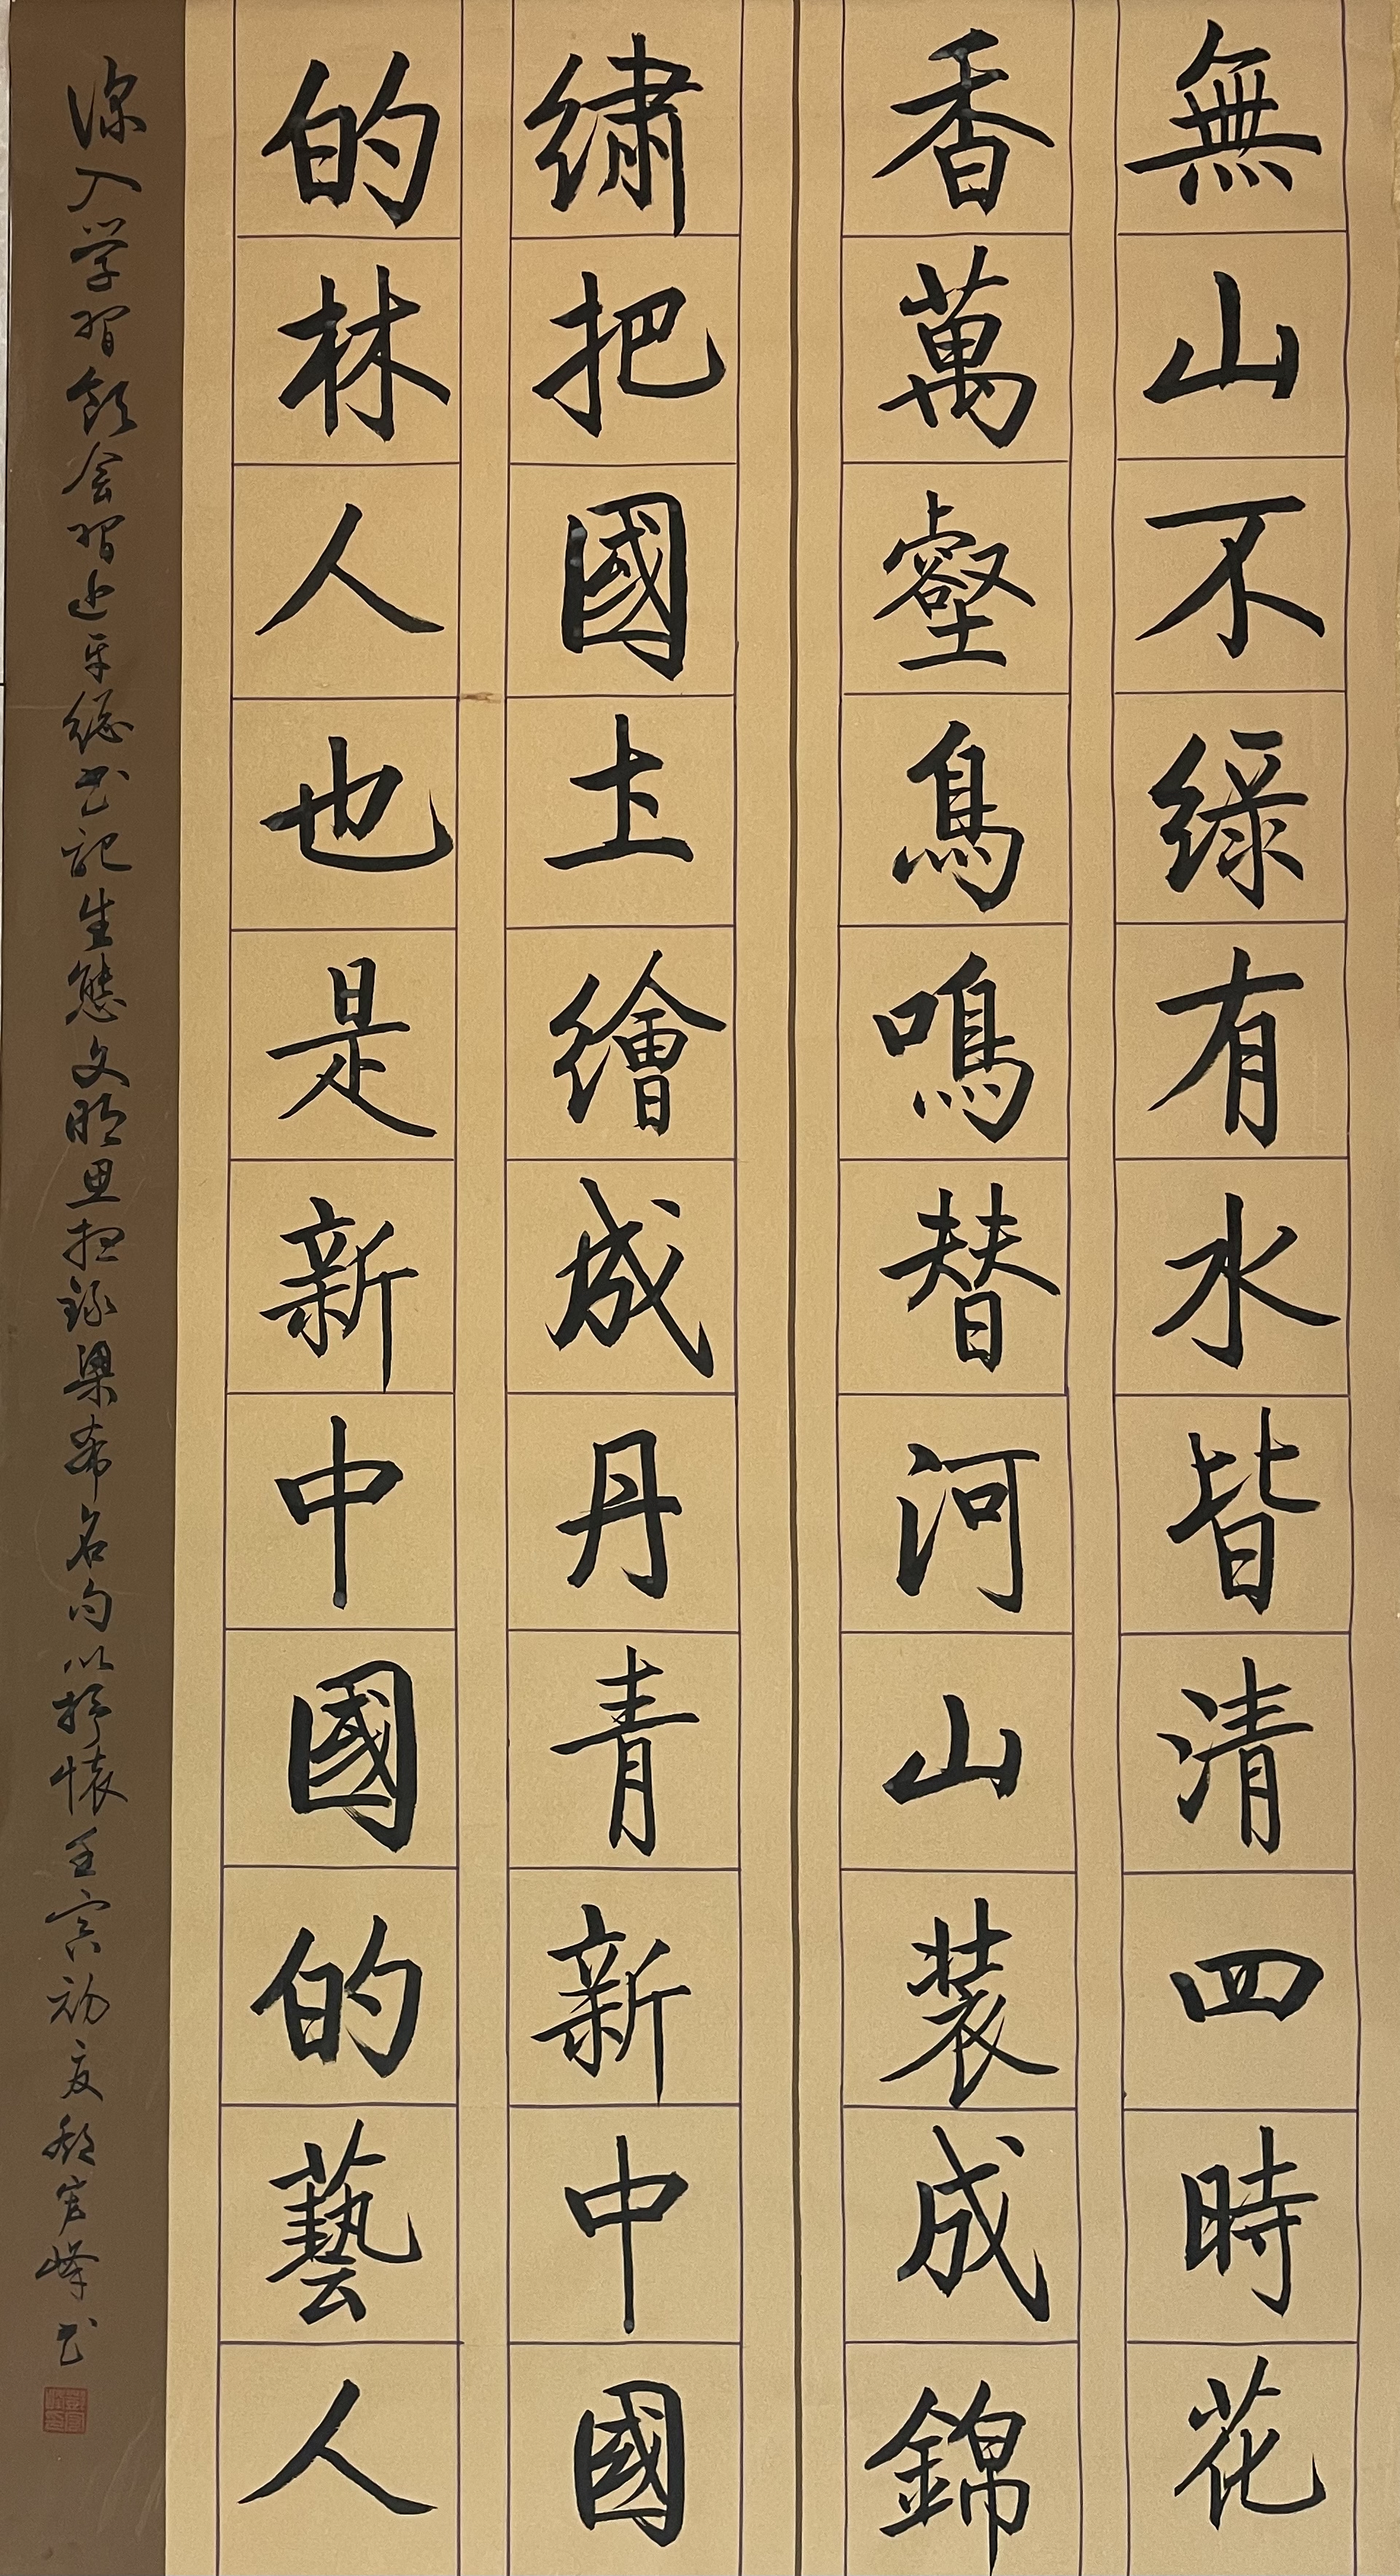 無山不綠有水皆清四時花
香萬壑鳥鳴替河山装成錦
繡把國土繪成丹青新中國
的林人也是新中國的藝人
深入学習领会習近平總书記生態文明思想録梁希名句以抒懷壬寅初夏峰书